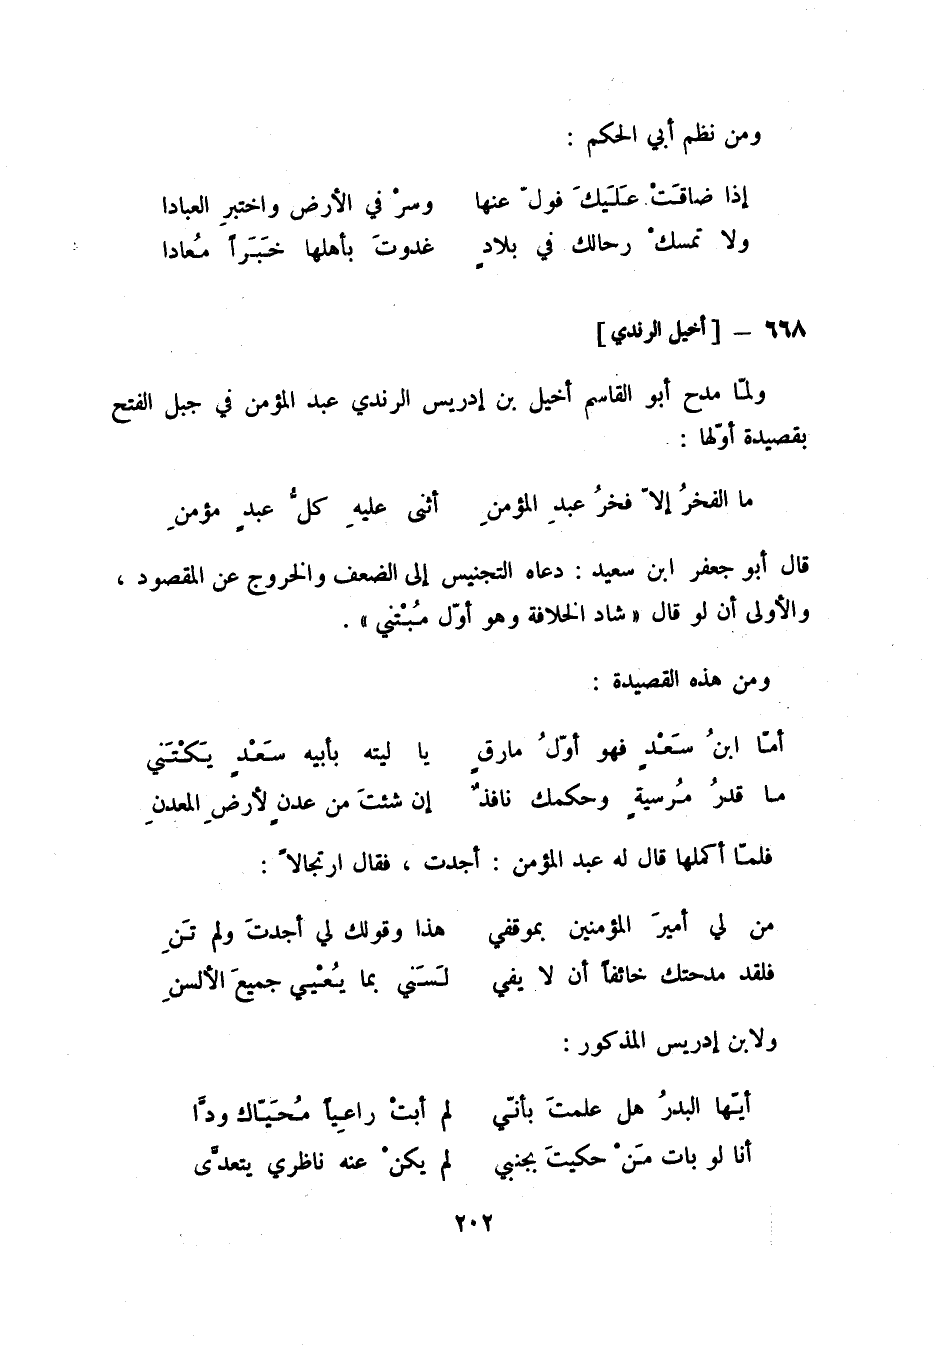 ومن نظم أبي الحكم :
إذا ضاقَتْ عَلَيكَ فولّ عنها    وسرْ في الأرض واختبرِ العبادا
ولا تمسكْ رحالك في بلادٍ    غدوتَ بأهلها خَبَراً مُعادا
٦٦٨ – [ أخيل الرندي ]
ولمّا مدح أبو القاسم أخيل بن إدريس الرندي عبد المؤمن في جبل الفتح
بقصيدة أوّلها :
ما الفخرُ إلاّ فخرُ عبدِ المؤمنِ    أثنى عليهِ كلُّ عبدٍ مؤمنِ
قال أبو جعفر ابن سعيد : دعاه التجنيس إلى الضعف والخروج عن المقصود ،
والأولى أن لو قال « شاد الخلافة وهو أوّل مُبْتني » .
ومن هذه القصيدة :
أمّا ابنُ سَعْدٍ فهو أوّلُ مارقٍ    يا ليته بأبيه سَعْدٍ يَكْتَني
ما قدرُ مُرسيةٍ وحكمك نافذٌ    إن شئتَ من عدنٍ لأرضِ المعدنِ
فلمّا أكملها قال له عبد المؤمن : أجدت ، فقال ارتجالاً :
من لي أميرَ المؤمنين بموقفي    هذا وقولك لي أجدتَ ولم تَنِ
فلقد مدحتك خائفاً أن لا يفي    لَسَني بما يُعْيي جميعَ الألسنِ
ولابن إدريس المذكور :
أيّها البدرُ هل علمتَ بأنّي    لم أبتْ راعياً مُحَيّاك ودَّا
أنا لو بات مَنْ حكيتَ بجنبي    لم يكنْ عنه ناظري يتعدَّى
٢٠٢